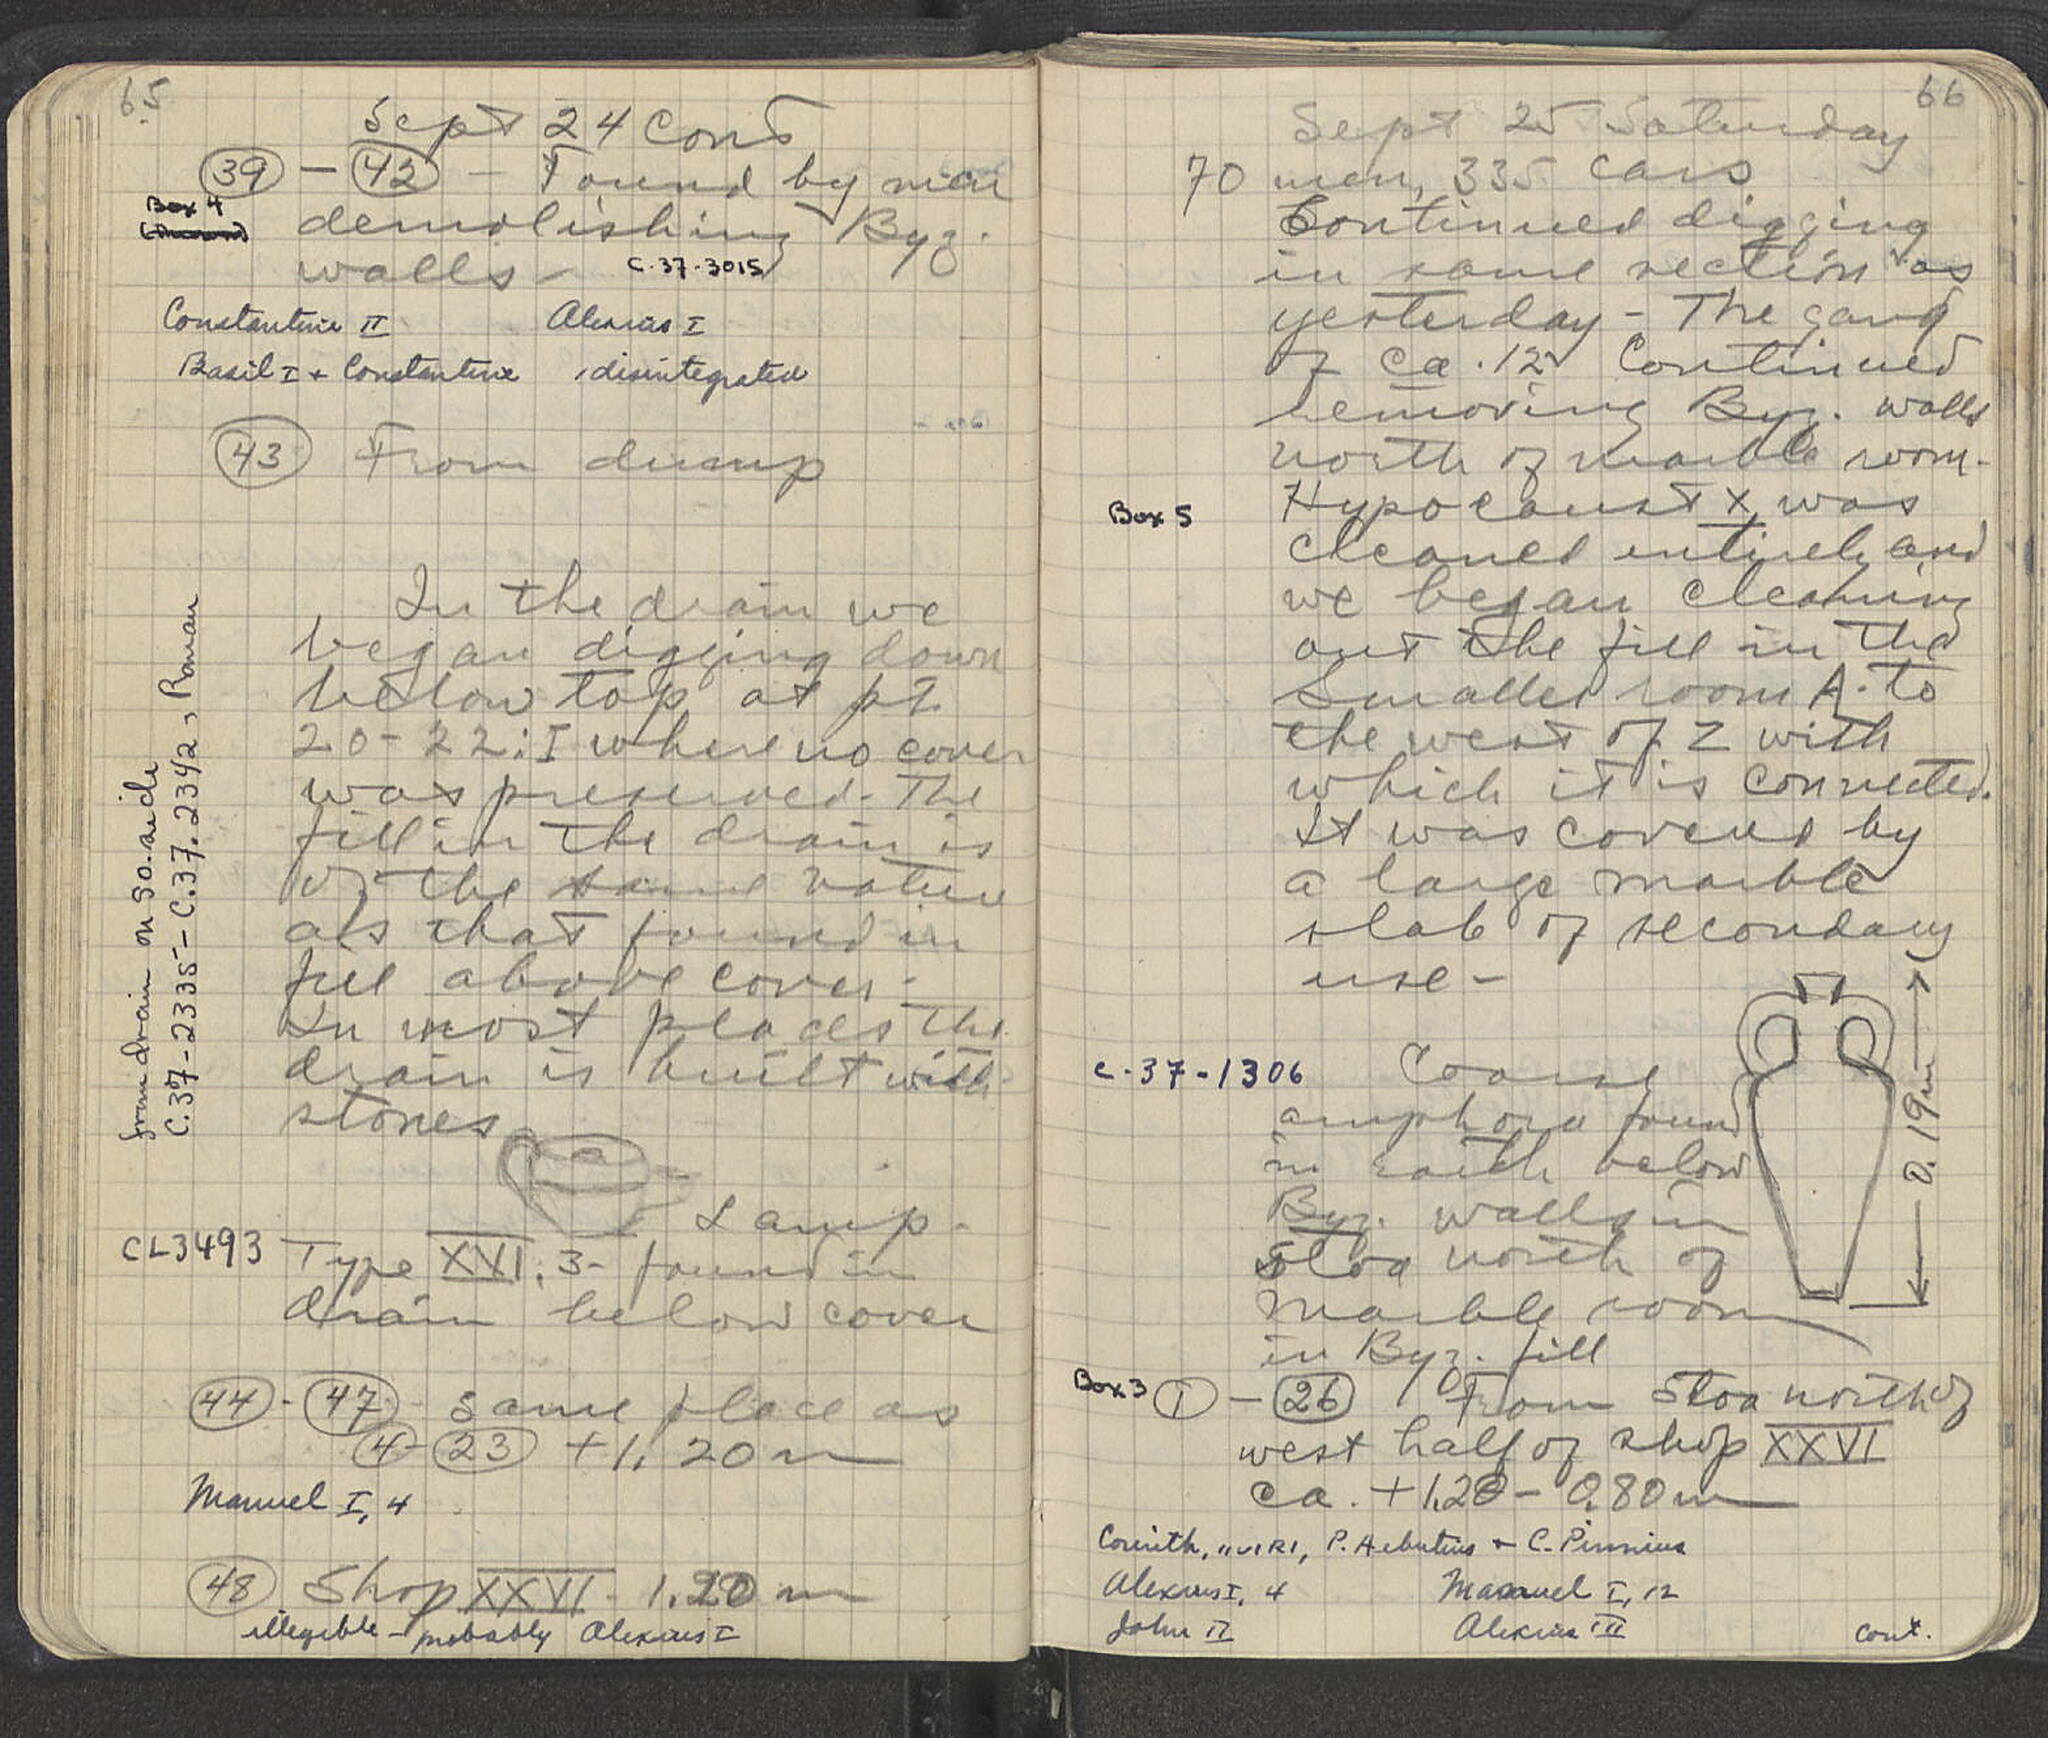 65
Sept 24 Cont
39 - 42 - Found by men
Box 4
demolishing Byz.
walls - C-37-3015
Constantine II Alexius I
Basil I + Constantine , disintegrated
43 From dump
In the drain we
began digging down
below top at pt.
20-22:I where no cover
was preserved. The
fill in the drain is
of the same nature
as that found in
fill above cover -
In most places the
drain is built with
stones
from drain on so. side
C.37-2335 - C.37.2342, Roman
Lamp -
CL3493 Type XVI, 3 - found in
drain below cover
44 - 47 - same place as
4 - 23 +1.20 m
Manuel I, 4
48 Shop XXVI - 1.20 m
illegible - probably Alexius I
66
Sept 25 Saturday
70 men, 335 cars
Continued digging
in same section as
yesterday - The gang
of ca. 12 continued
removing Byz. walls
north of marble room -
Box 5 Hypocaust X was
cleaned entirely and
we began cleaning
out the fill in the
smaller room A to
the west of Z with
which it is connected.
It was covered by
a large marble
slab of secondary
use -
C-37-1306 Coarse
amphora found
in earth below
Byz. walls in
Stoa north of
marble room
in Byz. fill
0.19m
Box 3 1 - 26 From Stoa north of
west half of shop XXVI
ca. +1.20 - 0.80 m
Corinth, IIVIRI, P. Aebutius + C. Pinnius
Alexius I, 4 Manuel I, 12
John II Alexius III cont.